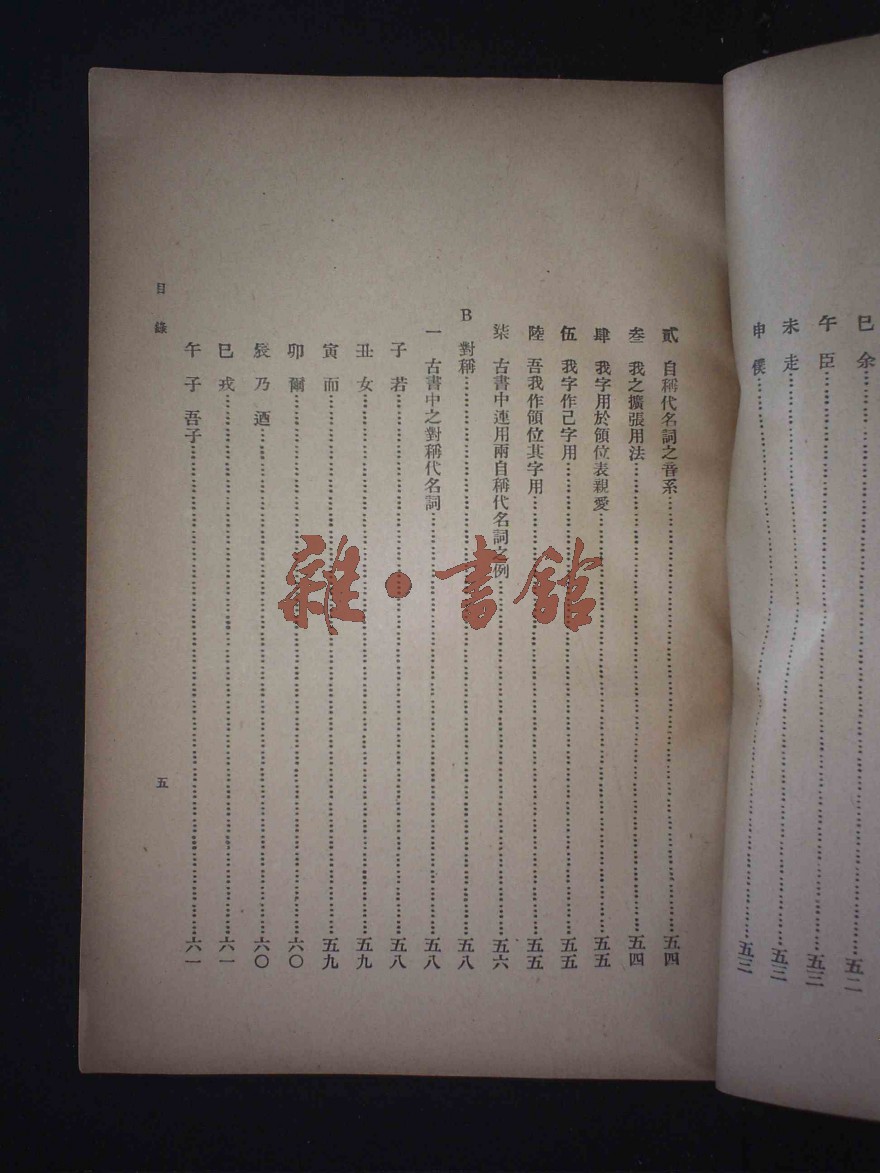 巳 余……五二
午 臣……五三
未 走……五三
申 僕……五三
貳 自稱代名詞之音系……五四
叁 我之擴張用法……五四
肆 我字用於領位表親愛……五五
伍 我字作己字用……五五
陸 吾我作領位其字用……五五
柒 古書中連用兩自稱代名詞之例……五六
B 對稱……五八
一 古書中之對稱代名詞……五八
子 若……五八
丑 女……五九
寅 而……五九
卯 爾……六〇
辰 乃 迺……六〇
巳 戎……六一
午 子 吾子……六一
目錄
五
雜·書館